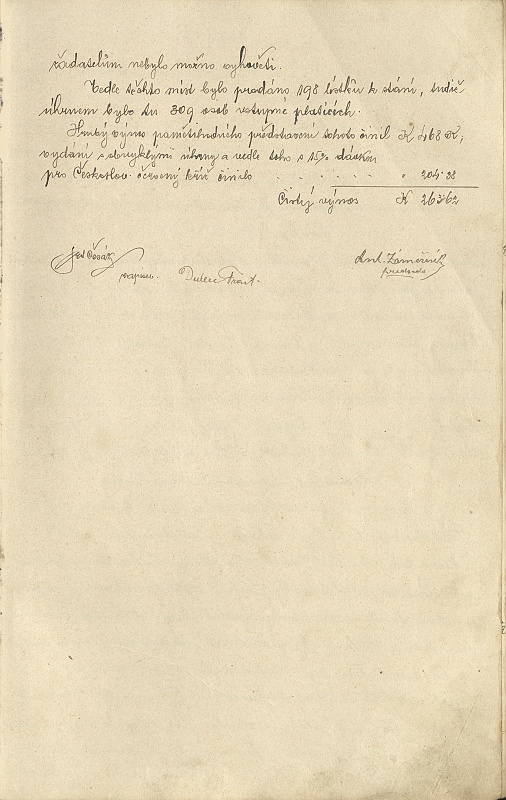 žadatelům nebylo možno vyhověti.
Vedle těchto míst bylo prodáno 198 lístků k stání, tudíž
úhrnem bylo tu 309 osob vstupné platících.
Hrubý výnos pamětihodného představení tohoto činil K 468 K;
vydání s obvyklými úhrny a vedle toho s 15% dávkou
pro Českoslov. červený kříž činilo . . . . . " 204·38
Čistý výnos K 263·62
zapisov.
Ant. Zámečník
předseda